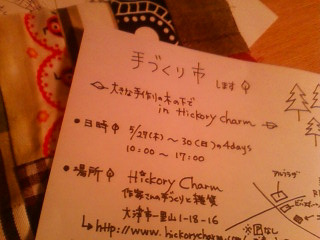 手づくり市 します
大きな手作りの木の下で
in Hickory Charm
•日時 5/27(木)〜30(日)の4days
10:00〜17:00
•場所 Hickory Charm
作家さんの手づくりと雑貨
大津市一里山1-18-16
↳http://www.hickorycharm